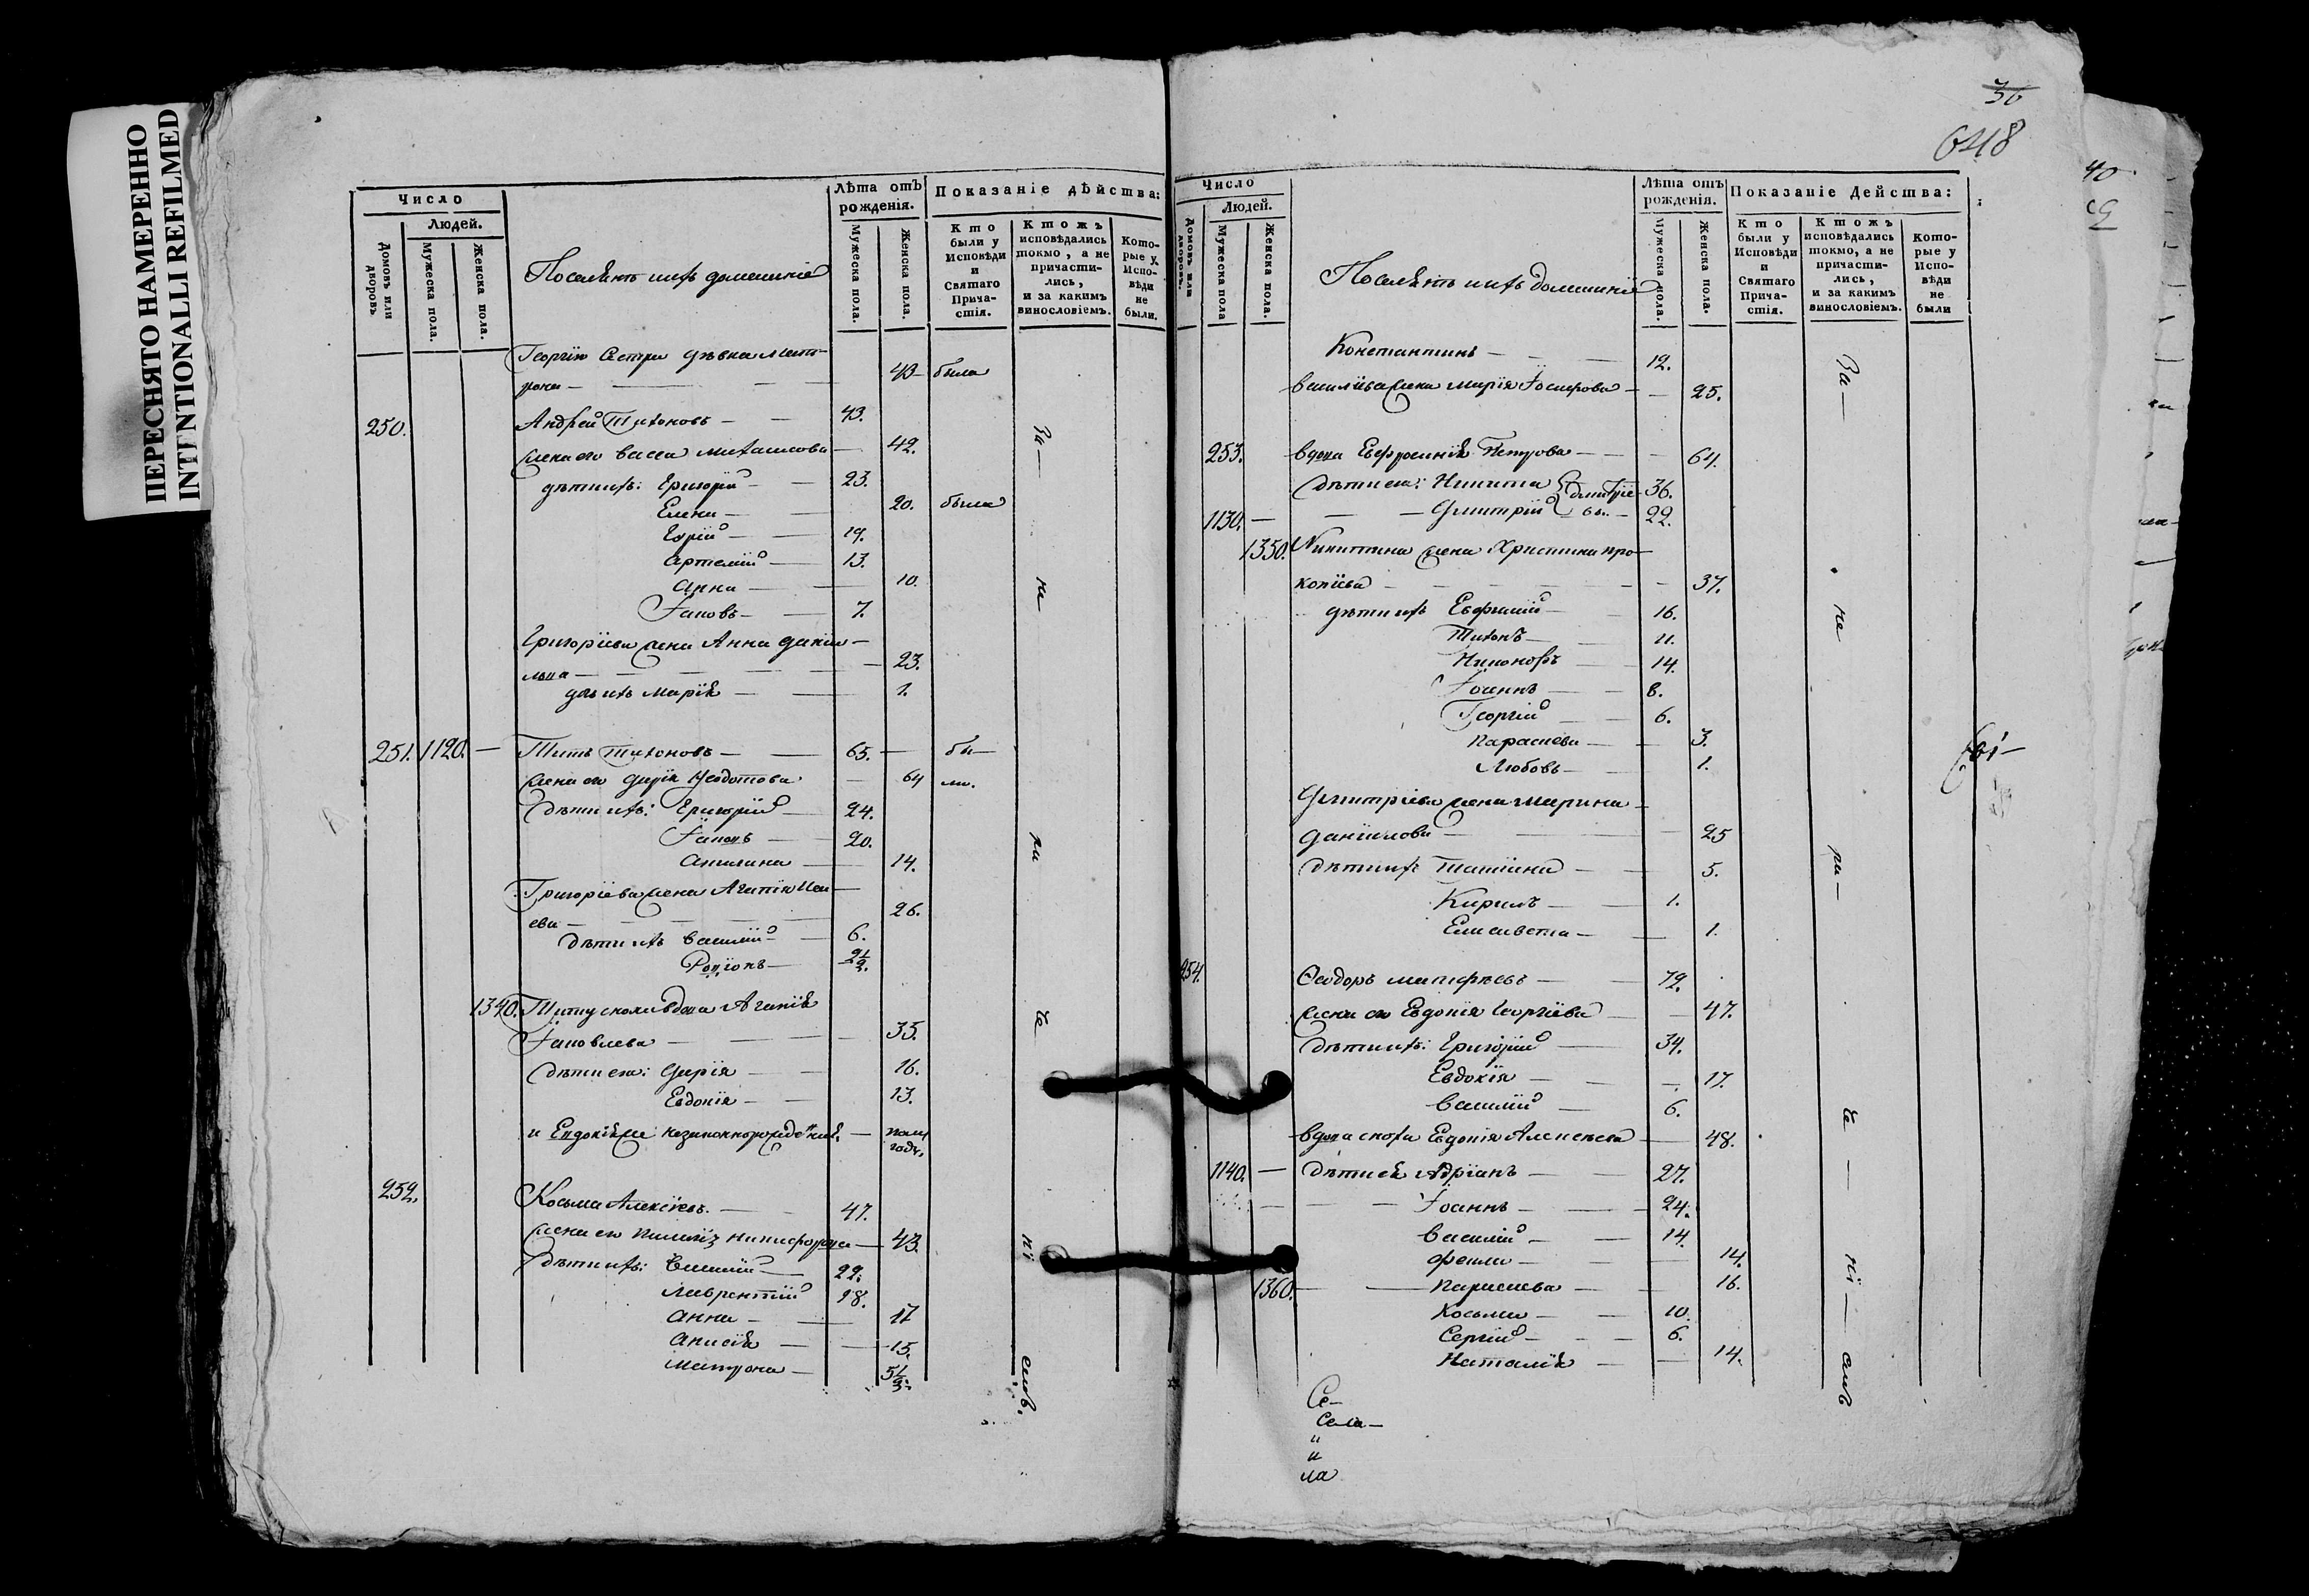 ПЕРЕСНЯТО НАМЕРЕННО
INTENTIONALLI REFILMED
Число
Людей.
Домовъ или дворовъ
Мужеска пола.
Женска пола.
Поселяне и ихъ домашніе
Лѣта отъ рожденія.
Мужеска пола.
Женска пола.
Показаніе дѣйства:
Кто были у Исповѣди и Святаго Прича-стія.
Ктожъ исповѣдались токмо, а не причасти-лись, и за какимъ винословіемъ.
Кото-рые у Испо-вѣди не были.
Георгія сестра дѣвка Мат-
рона — 43 была
250. Андрей Тихоновъ — 43.
жена его Васса — 42.
дѣти ихъ: Григорій — 23.
Елена — 20. была
Гурій — 19.
Артемій — 13.
Анна — 10.
Іаковъ — 7.
Григоріева жена Анна Даніи-
лова — 23.
дочь ихъ Марія — 1.
251. 1120. — Титъ Тихоновъ — 65. — бы—
жена его Дарія Ѳеодотова — 64 ли.
дѣти ихъ: Григорій — 24.
Іаковъ — 20.
Акилина — 14.
Григоріева жена Агапія Иса-
ева — 26.
дѣти ихъ Василій — 6.
Родіонъ — 2½.
1340. Титу сноха вдова Агапія
Іаковлева — 35.
дѣти ея: Дарія — 16.
Евдокія — 13.
и Евдокіею незаконнорожденная — полу года.
252. Косьма Алексѣевъ. — 47.
жена его Никифорова — 43.
дѣти ихъ: Василій — 22.
Лаврентій — 18.
Анна — 17
Анисія — 15.
Матрона — 5½.
За — не — ра че ні емъ.
36
648
Число
Людей.
Домовъ или дворовъ.
Мужеска пола
Женска пола.
Поселяне и ихъ домашніе
Лѣта отъ рожденія.
Мужеска пола.
Женска пола.
Показаніе Действа:
Кто были у Исповѣди и Святаго Прича-стія.
Ктожъ исповѣдались токмо, а не причасти-лись, и за какимъ винословіемъ.
Кото-рые у Испо-вѣди не были
Константинъ — 12.
Васильева жена Марія — 25.
253. вдова Евфросинія Петрова — 64.
дѣти ея: Никита 36.
1130. — Димитрій 22.
1350. Никитина жена Христина Про-
копіева — 37.
дѣти ихъ Евфимій — 16.
Тихонъ — 11.
Никоноръ — 14.
Іоаннъ — 8.
Георгій — 6.
Параскева — 3.
Любовь — 1.
Димитріева жена Марина
Даніилова — 25
дѣти ихъ Татіана — 5.
Кирилъ — 1.
Елисавета — 1.
254. Ѳеодоръ — 72.
жена его Евдокія Георгіева — 47.
дѣти ихъ: Григорій — 34.
Евдокія — 17.
Василій — 6.
вдова сноха Евдокія Алексѣева — 48.
1140. — дѣти ея Адріанъ — 27.
Іоаннъ — 24.
Василій — 14.
Фекла — 14.
1360. — Параскева — 16.
Косьма — 10.
Сергій — 6.
Наталія — 14.
За — не ра — че — ні — емъ
Се—
Села—
и
и
ла
40